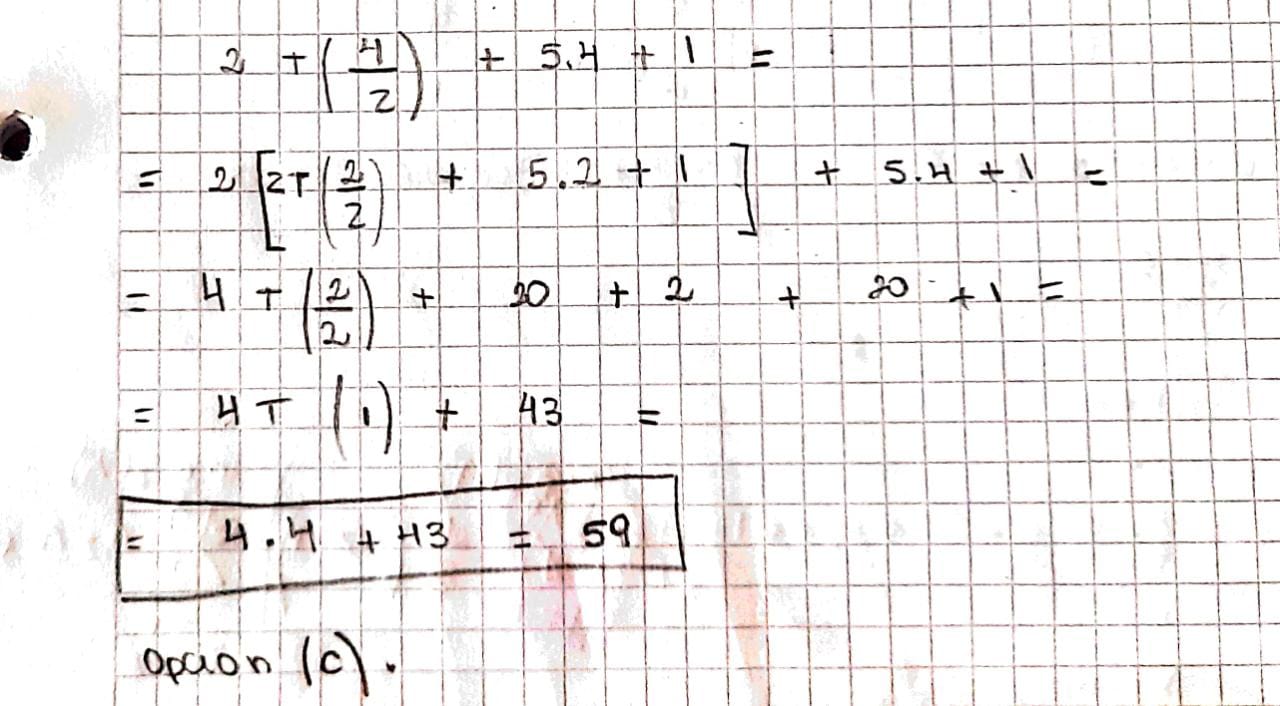 2 T (4/2) + 5.4 + 1 =
= 2 [2T (2/2) + 5.2 + 1] + 5.4 + 1 =
= 4 T (2/2) + 20 + 2 + 20 + 1 =
= 4T (1) + 43 =
= 4.4 + 43 = 59
opcion (c).